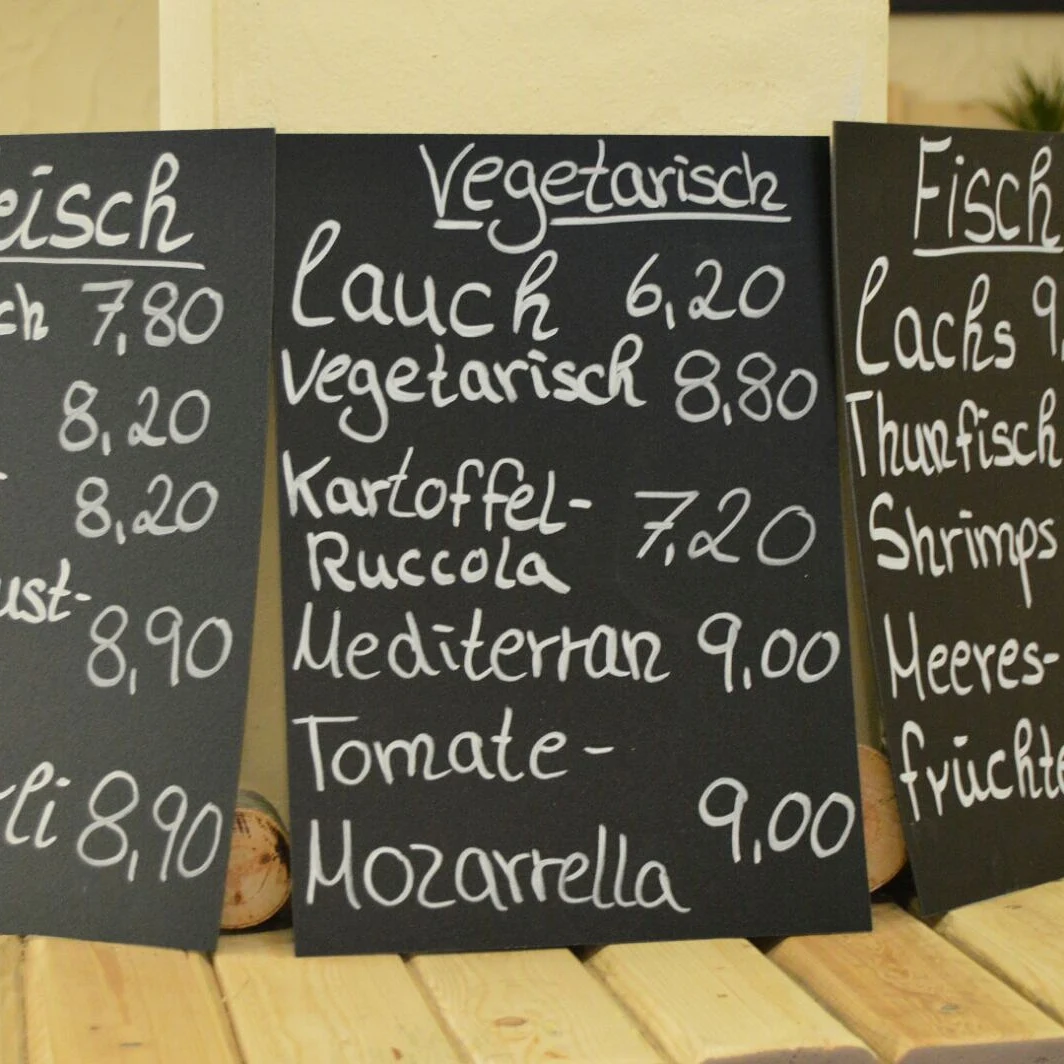 7,80
8,20
8,20
8,90
8,90
Vegetarisch
Lauch 6,20
Vegetarisch 8,80
Kartoffel-
Ruccola 7,20
Mediterran 9,00
Tomate-
Mozarrella 9,00
Fisch
Lachs 9,
Thunfisch
Shrimps
Meeres-
früchte